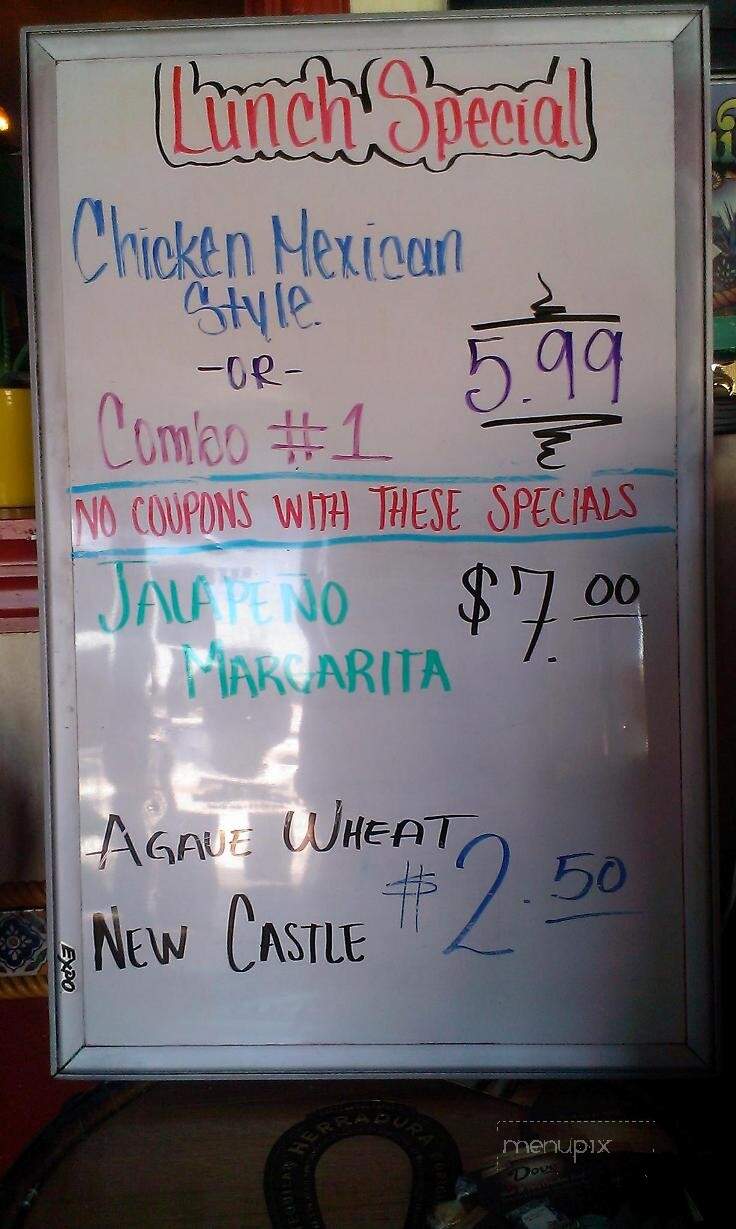 Lunch Special
Chicken Mexican
Style.
-OR-
5.99
Combo #1
NO COUPONS WITH THESE SPECIALS
JALAPEÑO
MARGARITA
$7.00
AGAVE WHEAT
$2.50
NEW CASTLE
EXPO
HERRADURA
menupix